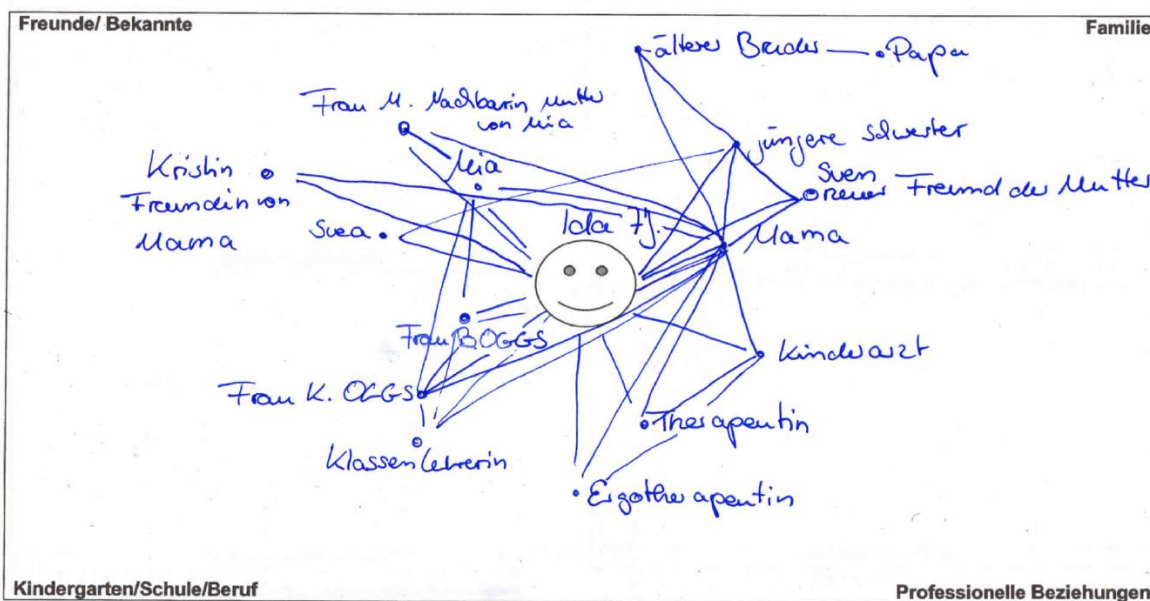 Freunde/ Bekannte
Familie
älterer Bruder
Papa
Frau M. Nachbarin Mutter
von Mia
jüngere Schwester
Mia
Kristin
Freundin von
Mama
Sven
neuer Freund der Mutter
Svea
Ida 7J.
Mama
Frau B. OGGS
Kinderarzt
Frau K. OGGS
Therapeutin
Klassenlehrerin
Ergotherapeutin
Kindergarten/Schule/Beruf
Professionelle Beziehungen